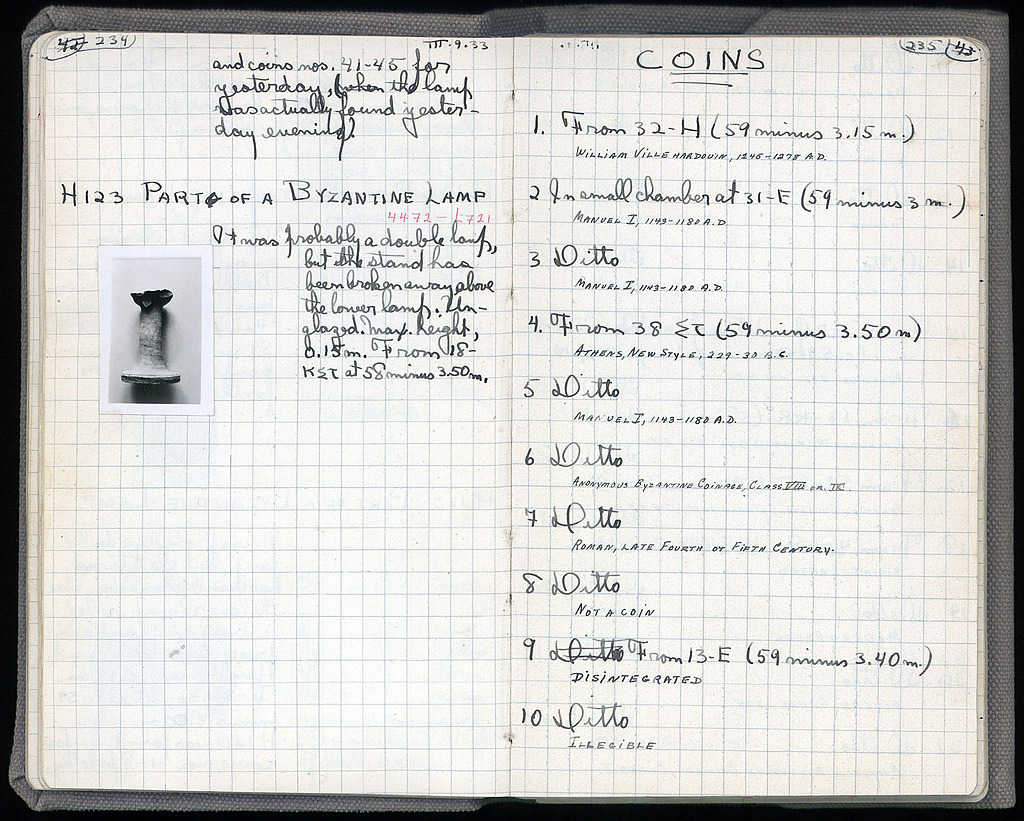 42 234
III.9.33
and coins nos. 41-45 for
yesterday, (when the lamp
was actually found yester-
day evening).
H123 PART OF A BYZANTINE LAMP
4472 - L 721
It was probably a double lamp,
but the stand has
been broken away above
the lower lamp. Un-
glazed. Max. height,
0.15 m. From 18-
ΚΣΤ at 58 minus 3.50 m.
235 43
COINS
1. From 32-H (59 minus 3.15 m.)
WILLIAM VILLEHARDOUIN, 1246-1278 A.D.
2 In small chamber at 31-E (59 minus 3 m.)
MANUEL I, 1143-1180 A.D.
3 Ditto
MANUEL I, 1143-1180 A.D.
4. From 38 ΣΤ (59 minus 3.50 m)
ATHENS, NEW STYLE, 229-30 B.C.
5 Ditto
MANUEL I, 1143-1180 A.D.
6 Ditto
ANONYMOUS BYZANTINE COINAGE, CLASS VIII OR IX.
7 Ditto
ROMAN, LATE FOURTH OR FIFTH CENTURY.
8 Ditto
NOT A COIN
9 Ditto From 13-E (59 minus 3.40 m.)
DISINTEGRATED
10 Ditto
ILLEGIBLE